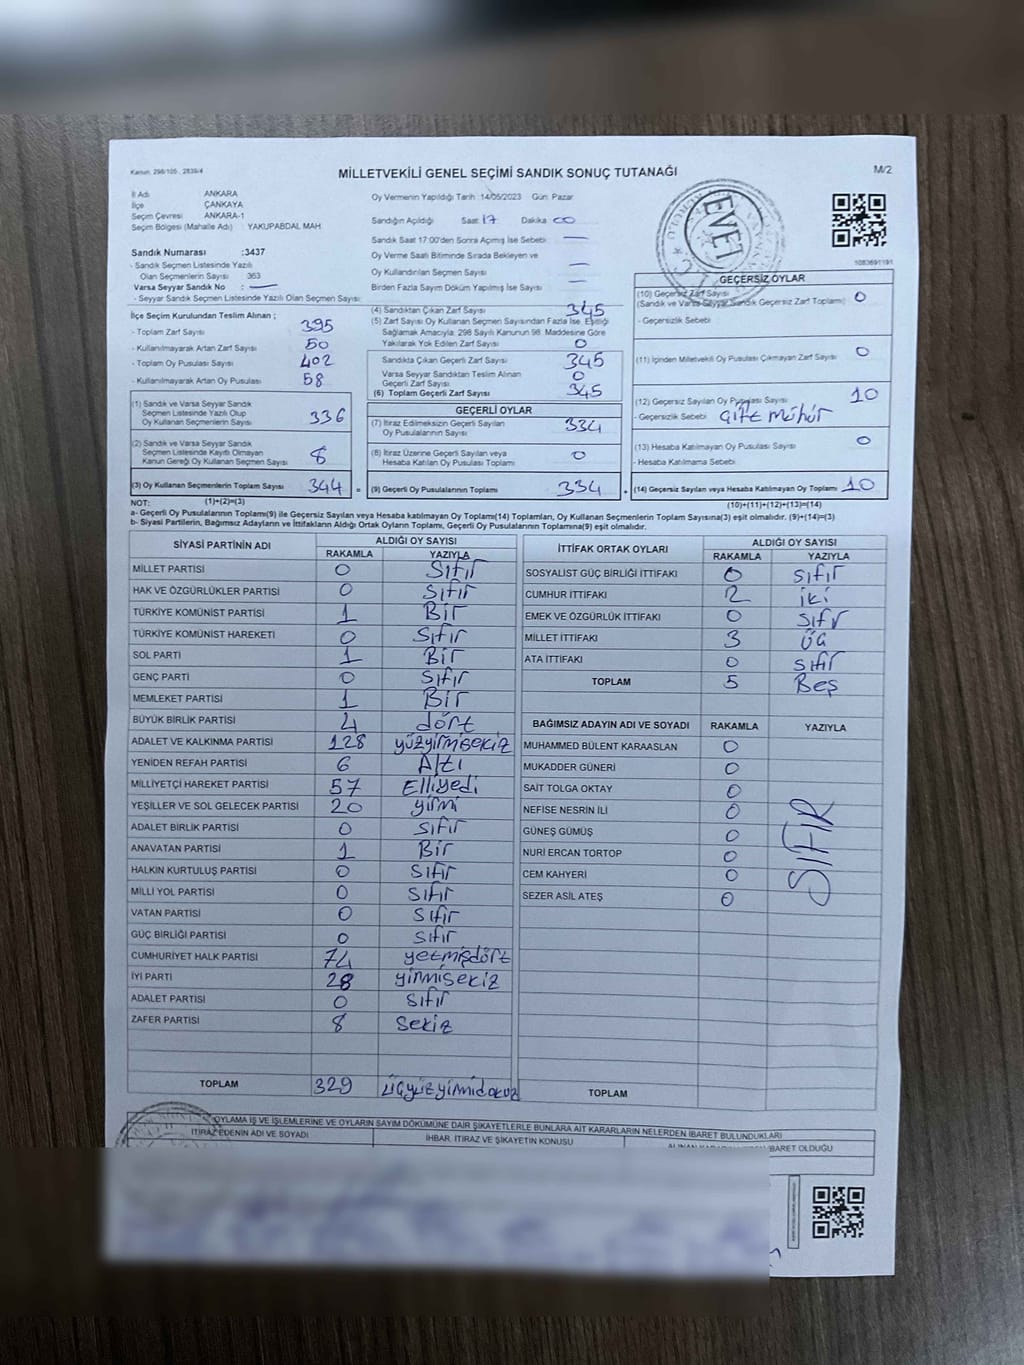 Kanun: 298/105 , 2839/4
MİLLETVEKİLİ GENEL SEÇİMİ SANDIK SONUÇ TUTANAĞI
M/2
İl Adı ANKARA
İlçe ÇANKAYA
Seçim Çevresi ANKARA-1
Seçim Bölgesi (Mahalle Adı) : YAKUPABDAL MAH
Sandık Numarası :3437
- Sandık Seçmen Listesinde Yazılı
Olan Seçmenlerin Sayısı 363
Varsa Seyyar Sandık No : —
- Seyyar Sandık Seçmen Listesinde Yazılı Olan Seçmen Sayısı:
İlçe Seçim Kurulundan Teslim Alınan ;
- Toplam Zarf Sayısı 395
- Kullanılmayarak Artan Zarf Sayısı 50
- Toplam Oy Pusulası Sayısı 402
- Kullanılmayarak Artan Oy Pusulası 58
(1) Sandık ve Varsa Seyyar Sandık
Seçmen Listesinde Yazılı Olup
Oy Kullanan Seçmenlerin Sayısı 336
(2) Sandık ve Varsa Seyyar Sandık
Seçmen Listesinde Kayıtlı Olmayan
Kanun Gereği Oy Kullanan Seçmen Sayısı 8
(3) Oy Kullanan Seçmenlerin Toplam Sayısı 344 =
(1)+(2)=(3)
Oy Vermenin Yapıldığı Tarih :14/05/2023 Gün: Pazar
Sandığın Açıldığı Saat 17 Dakika 00
Sandık Saat 17:00'den Sonra Açılmış İse Sebebi —
Oy Verme Saati Bitiminde Sırada Bekleyen ve
Oy Kullandırılan Seçmen Sayısı —
Birden Fazla Sayım Döküm Yapılmış İse Sayısı —
(4) Sandıktan Çıkan Zarf Sayısı 345
(5) Zarf Sayısı Oy Kullanan Seçmen Sayısından Fazla İse, Eşitliği
Sağlamak Amacıyla; 298 Sayılı Kanunun 98. Maddesine Göre
Yakılarak Yok Edilen Zarf Sayısı 0
Sandıkta Çıkan Geçerli Zarf Sayısı 345
Varsa Seyyar Sandıktan Teslim Alınan
Geçerli Zarf Sayısı 0
(6) Toplam Geçerli Zarf Sayısı 345
GEÇERLİ OYLAR
(7) İtiraz Edilmeksizin Geçerli Sayılan
Oy Pusulalarının Sayısı 334
(8) İtiraz Üzerine Geçerli Sayılan veya
Hesaba Katılan Oy Pusulası Toplamı 0
(9) Geçerli Oy Pusulalarının Toplamı 334 +
EVET
1083691191
GEÇERSİZ OYLAR
(10) Geçersiz Zarf Sayısı 0
(Sandık ve Varsa Seyyar Sandık Geçersiz Zarf Toplamı)
- Geçersizlik Sebebi:
(11) İçinden Milletvekili Oy Pusulası Çıkmayan Zarf Sayısı 0
(12) Geçersiz Sayılan Oy Pusulası Sayısı 10
- Geçersizlik Sebebi Çift mühür
(13) Hesaba Katılmayan Oy Pusulası Sayısı 0
- Hesaba Katılmama Sebebi
(14) Geçersiz Sayılan veya Hesaba Katılmayan Oy Toplamı 10
(10)+(11)+(12)+(13)=(14)
NOT:
a- Geçerli Oy Pusulalarının Toplamı(9) ile Geçersiz Sayılan veya Hesaba katılmayan Oy Toplamı(14) Toplamları, Oy Kullanan Seçmenlerin Toplam Sayısına(3) eşit olmalıdır. (9)+(14)=(3)
b- Siyasi Partilerin, Bağımsız Adayların ve İttifakların Aldığı Ortak Oyların Toplamı, Geçerli Oy Pusulalarının Toplamına(9) eşit olmalıdır.
SİYASİ PARTİNİN ADI ALDIĞI OY SAYISI
RAKAMLA YAZIYLA
MİLLET PARTİSİ 0 Sıfır
HAK VE ÖZGÜRLÜKLER PARTİSİ 0 Sıfır
TÜRKİYE KOMÜNİST PARTİSİ 1 Bir
TÜRKİYE KOMÜNİST HAREKETİ 0 Sıfır
SOL PARTİ 1 Bir
GENÇ PARTİ 0 Sıfır
MEMLEKET PARTİSİ 1 Bir
BÜYÜK BİRLİK PARTİSİ 4 dört
ADALET VE KALKINMA PARTİSİ 128 yüzyirmisekiz
YENİDEN REFAH PARTİSİ 6 Altı
MİLLİYETÇİ HAREKET PARTİSİ 57 Elliyedi
YEŞİLLER VE SOL GELECEK PARTİSİ 20 yirmi
ADALET BİRLİK PARTİSİ 0 sıfır
ANAVATAN PARTİSİ 1 Bir
HALKIN KURTULUŞ PARTİSİ 0 Sıfır
MİLLİ YOL PARTİSİ 0 sıfır
VATAN PARTİSİ 0 sıfır
GÜÇ BİRLİĞİ PARTİSİ 0 sıfır
CUMHURİYET HALK PARTİSİ 74 yetmişdört
İYİ PARTİ 28 yirmisekiz
ADALET PARTİSİ 0 sıfır
ZAFER PARTİSİ 8 Sekiz
TOPLAM 329 üçyüzyirmidokuz
İTTİFAK ORTAK OYLARI ALDIĞI OY SAYISI
RAKAMLA YAZIYLA
SOSYALİST GÜÇ BİRLİĞİ İTTİFAKI 0 sıfır
CUMHUR İTTİFAKI 2 iki
EMEK VE ÖZGÜRLÜK İTTİFAKI 0 sıfır
MİLLET İTTİFAKI 3 üç
ATA İTTİFAKI 0 sıfır
TOPLAM 5 Beş
BAĞIMSIZ ADAYIN ADI VE SOYADI RAKAMLA YAZIYLA
MUHAMMED BÜLENT KARAASLAN 0
MUKADDER GÜNERİ 0
SAİT TOLGA OKTAY 0
NEFİSE NESRİN İLİ 0
GÜNEŞ GÜMÜŞ 0
NURİ ERCAN TORTOP 0
CEM KAHYERİ 0
SEZER ASİL ATEŞ 0
SIFIR
TOPLAM
OYLAMA İŞ VE İŞLEMLERİNE VE OYLARIN SAYIM DÖKÜMÜNE DAİR ŞİKAYETLERLE BUNLARA AİT KARARLARIN NELERDEN İBARET BULUNDUKLARI
İTİRAZ EDENİN ADI VE SOYADI İHBAR, İTİRAZ VE ŞİKAYETİN KONUSU İBARET OLDUĞU